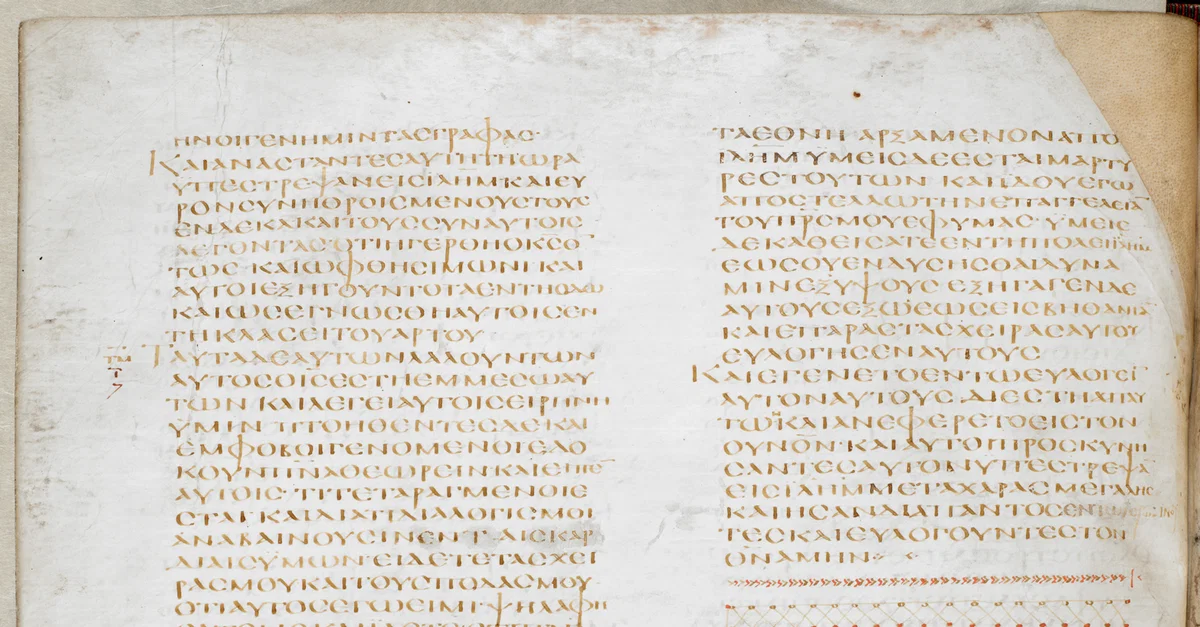 ΗΝΟΙΓΕΝΗΜΙΝΤΑϹΓΡΑΦΑϹ·
ΚΑΙΑΝΑϹΤΑΝΤΕϹΑΥΤΗΤΗΩΡΑ
ΥΠΕϹΤΡΕΨΑΝΕΙϹΙΛΗΜΚΑΙΕΥ
ΡΟΝϹΥΝΗΘΡΟΙϹΜΕΝΟΥϹΤΟΥϹ
ΕΝΔΕΚΑΚΑΙΤΟΥϹϹΥΝΑΥΤΟΙϹ
ΛΕΓΟΝΤΑϹΟΤΙΗΓΕΡΘΗΟΚ̅Ϲ̅Ο̅
ΤΩϹ ΚΑΙΩΦΘΗϹΙΜΩΝΙΚΑΙ
ΑΥΤΟΙΕΞΗΓΟΥΝΤΟΤΑΕΝΤΗΟΔΩ
ΚΑΙΩϹΕΓΝΩϹΘΗΑΥΤΟΙϹΕΝ
ΤΗΚΛΑϹΕΙΤΟΥΑΡΤΟΥ
ΤΑΥΤΑΔΕΑΥΤΩΝΛΑΛΟΥΝΤΩΝ
ΑΥΤΟϹΟΙ̅Ϲ̅ΕϹΤΗΕΜΜΕϹΩΑΥ
ΤΩΝ ΚΑΙΛΕΓΕΙΑΥΤΟΙϹΕΙΡΗΝΗ
ΥΜΙΝ ΠΤΟΗΘΕΝΤΕϹΔΕΚΑΙ
ΕΜΦΟΒΟΙΓΕΝΟΜΕΝΟΙΕΔΟ
ΚΟΥΝΠ̅Ν̅Α̅ΘΕΩΡΕΙΝ·ΚΑΙΕΙΠΕ̅
ΑΥΤΟΙϹ·ΤΙΤΕΤΑΡΑΓΜΕΝΟΙΕ
ϹΤΑΙ· ΚΑΙΔΙΑΤΙΔΙΑΛΟΓΙϹΜΟΙ
ΑΝΑΒΑΙΝΟΥϹΙΝΕΝΤΑΙϹΚΑΡ
ΔΙΑΙϹΥΜΩΝ·ΕΙΔΕΤΕΤΑϹΧΕΙ
ΡΑϹΜΟΥΚΑΙΤΟΥϹΠΟΔΑϹΜΟΥ·
ΟΤΙΑΥΤΟϹΕΓΩΕΙΜΙ·ΨΗΛΑΦΗ
ΤΑΕΘΝΗ ΑΡΞΑΜΕΝΟΝΑΠΟ
ΙΛΗΜΥΜΕΙϹΔΕΕϹΤΑΙΜΑΡΤΥ
ΡΕϹΤΟΥΤΩΝ ΚΑΙΙΔΟΥΕΓΩ
ΑΠΟϹΤΕΛΛΩΤΗΝΕΠΑΓΓΕΛΕΙΑ̅
ΤΟΥΠ̅Ρ̅Ϲ̅ΜΟΥΕΦΥΜΑϹ·ΥΜΕΙϹ
ΔΕΚΑΘΕΙϹΑΤΕΕΝΤΗΠΟΛΕΙΙΛΗΜ
ΕΩϹΟΥΕΝΔΥϹΗϹΘΑΙΔΥΝΑ
ΜΙΝΕΞΥΨΟΥϹ ΕΞΗΓΑΓΕΝΔΕ
ΑΥΤΟΥϹΕΞΩΕΩϹΕΙϹΒΗΘΑΝΙΑ̅
ΚΑΙΕΠΑΡΑϹΤΑϹΧΕΙΡΑϹΑΥΤΟΥ
ΕΥΛΟΓΗϹΕΝΑΥΤΟΥϹ
ΚΑΙΕΓΕΝΕΤΟΕΝΤΩΕΥΛΟΓΕΙ̅
ΑΥΤΟΝΑΥΤΟΥϹ ΔΙΕϹΤΗΑΠΑΥ
ΤΩΝΚΑΙΑΝΕΦΕΡΕΤΟΕΙϹΤΟΝ
ΟΥΝΟΝ·ΚΑΙΑΥΤΟΙΠΡΟϹΚΥΝΗ
ϹΑΝΤΕϹΑΥΤΟΝΥΠΕϹΤΡΕΨΑ̅
ΕΙϹΙΛΗΜΜΕΤΑΧΑΡΑϹΜΕΓΑΛΗϹ
ΚΑΙΗϹΑΝΔΙΑΠΑΝΤΟϹΕΝ
ΤΕϹΚΑΙΕΥΛΟΓΟΥΝΤΕϹΤΟΝ
Θ̅Ν̅ΑΜΗΝ